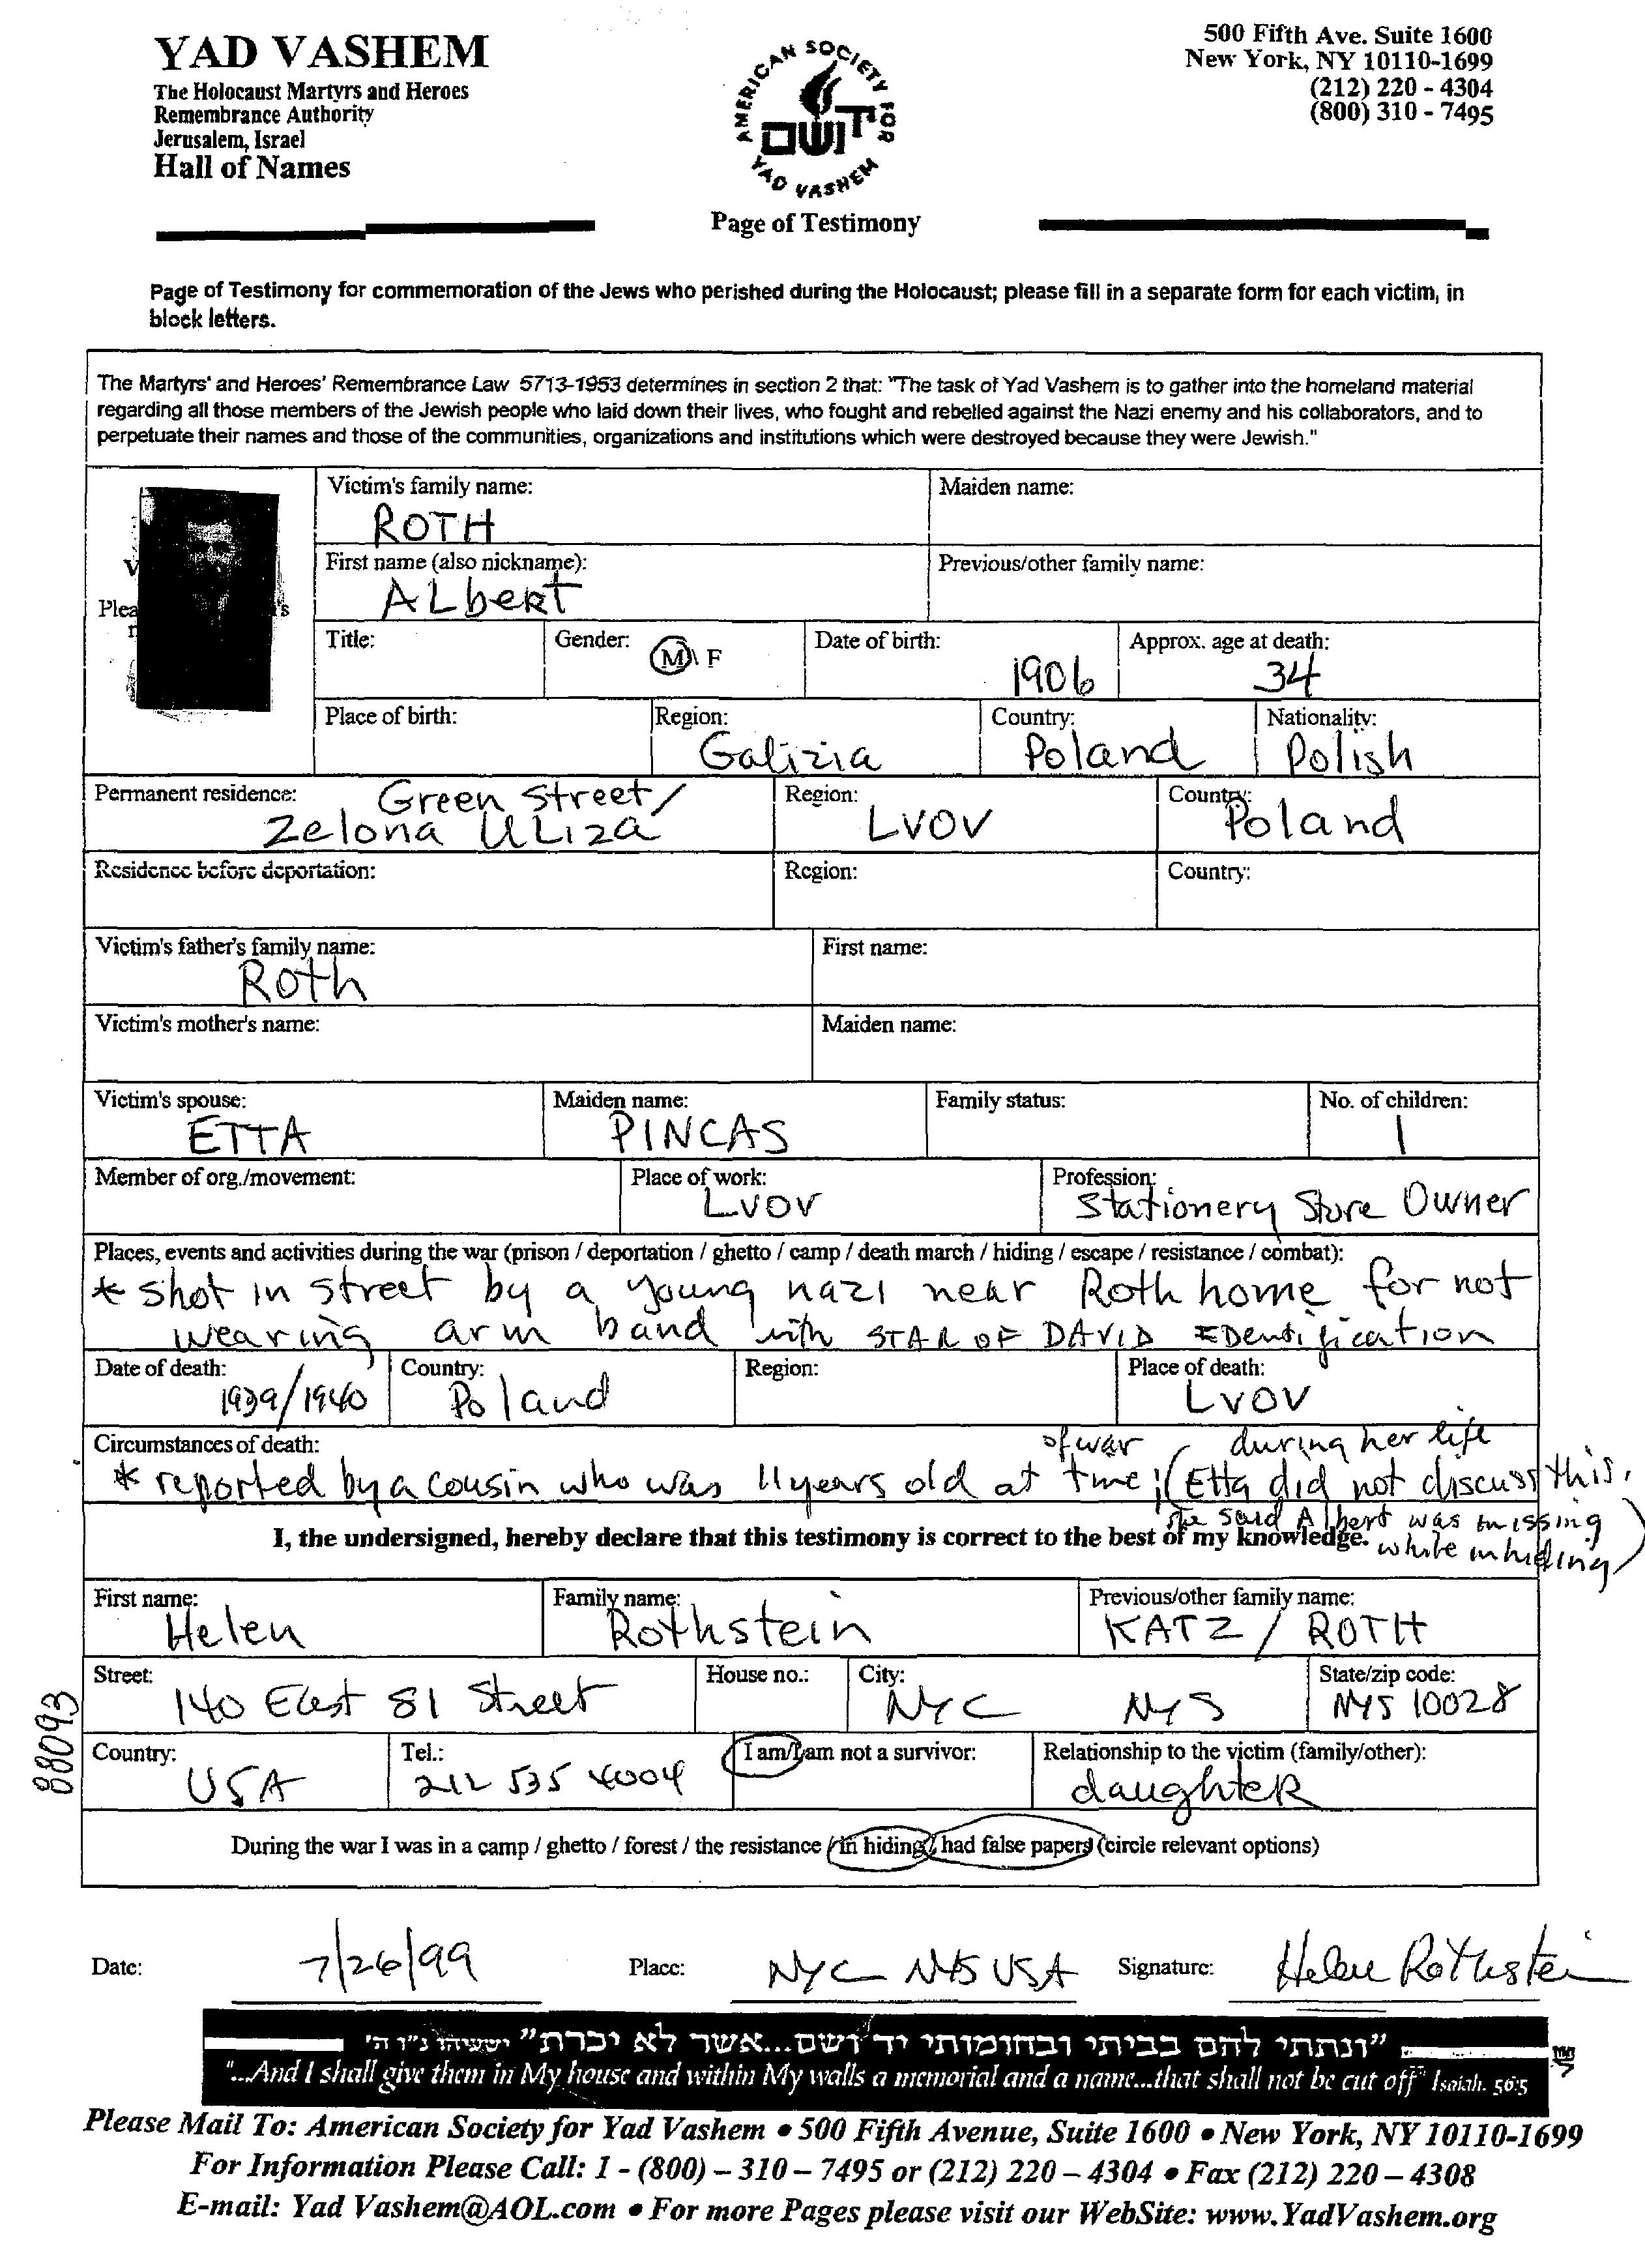 YAD VASHEM
The Holocaust Martyrs and Heroes
Remembrance Authority
Jerusalem, Israel
Hall of Names
AMERICAN SOCIETY FOR
YAD VASHEM
יד ושם
Page of Testimony
500 Fifth Ave. Suite 1600
New York, NY 10110-1699
(212) 220 - 4304
(800) 310 - 7495
Page of Testimony for commemoration of the Jews who perished during the Holocaust; please fill in a separate form for each victim, in
block letters.
The Martyrs' and Heroes' Remembrance Law 5713-1953 determines in section 2 that: "The task of Yad Vashem is to gather into the homeland material
regarding all those members of the Jewish people who laid down their lives, who fought and rebelled against the Nazi enemy and his collaborators, and to
perpetuate their names and those of the communities, organizations and institutions which were destroyed because they were Jewish."
Victim's family name: Maiden name:
ROTH
First name (also nickname): Previous/other family name:
ALbeRT
Title: Gender: M\ F Date of birth: Approx. age at death:
1906 34
Place of birth: Region: Country: Nationality:
Galizia Poland Polish
Permanent residence: Green Street/ Region: Country:
Zelona ULiza LVOV Poland
Residence before deportation: Region: Country:
Victim's father's family name: First name:
Roth
Victim's mother's name: Maiden name:
Victim's spouse: Maiden name: Family status: No. of children:
ETTA PINCAS 1
Member of org./movement: Place of work: Profession:
LVOV Stationery Store Owner
Places, events and activities during the war (prison / deportation / ghetto / camp / death march / hiding / escape / resistance / combat):
* shot in street by a young nazi near Roth home for not
wearing arm band with STAR OF DAVID IDentification
Date of death: Country: Region: Place of death:
1939/1940 Poland LVOV
Circumstances of death: of war during her life
* reported by a cousin who was 11 years old at time; (Etta did not discuss this.
she said Albert was missing
I, the undersigned, hereby declare that this testimony is correct to the best of my knowledge. while in hiding)
First name: Family name: Previous/other family name:
Helen Rothstein KATZ / ROTH
Street: House no.: City: State/zip code:
140 East 81 Street NYC NYS NYS 10028
88093
Country: Tel.: I am/I am not a survivor: Relationship to the victim (family/other):
USA 212 535 4004 daughteR
During the war I was in a camp / ghetto / forest / the resistance / in hiding / had false papers (circle relevant options)
Date: 7/26/99 Place: NYC NYS USA Signature: Helen Rothstein
"ונתתי להם בביתי ובחומותי יד ושם...אשר לא יכרת" ישעיהו נ"ו ה'
"...And I shall give them in My house and within My walls a memorial and a name...that shall not be cut off" Isaiah. 56:5
Please Mail To: American Society for Yad Vashem • 500 Fifth Avenue, Suite 1600 • New York, NY 10110-1699
For Information Please Call: 1 - (800) – 310 – 7495 or (212) 220 – 4304 • Fax (212) 220 – 4308
E-mail: Yad Vashem@AOL.com • For more Pages please visit our WebSite: www.YadVashem.org